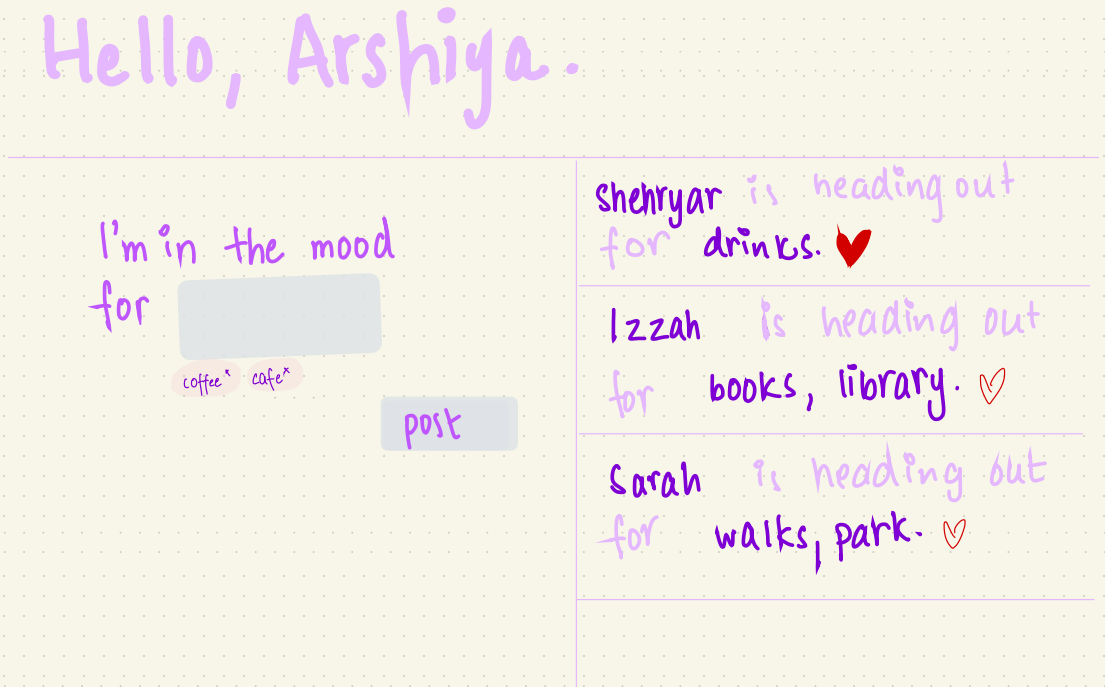 Hello, Arshiya.
I'm in the mood
for
coffee* cafe*
post
shehryar is heading out
for drinks.
Izzah is heading out
for books, library.
Sarah is heading out
for walks, park.